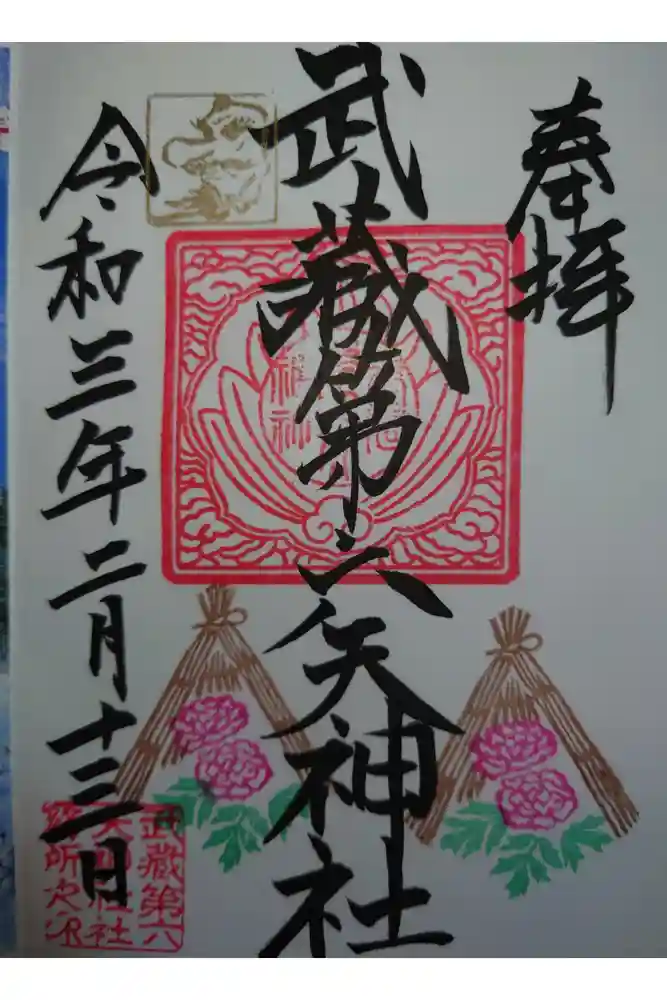 奉拝
武蔵第六天神社
令和三年二月十三日
武蔵第六
天神社社
務所之印